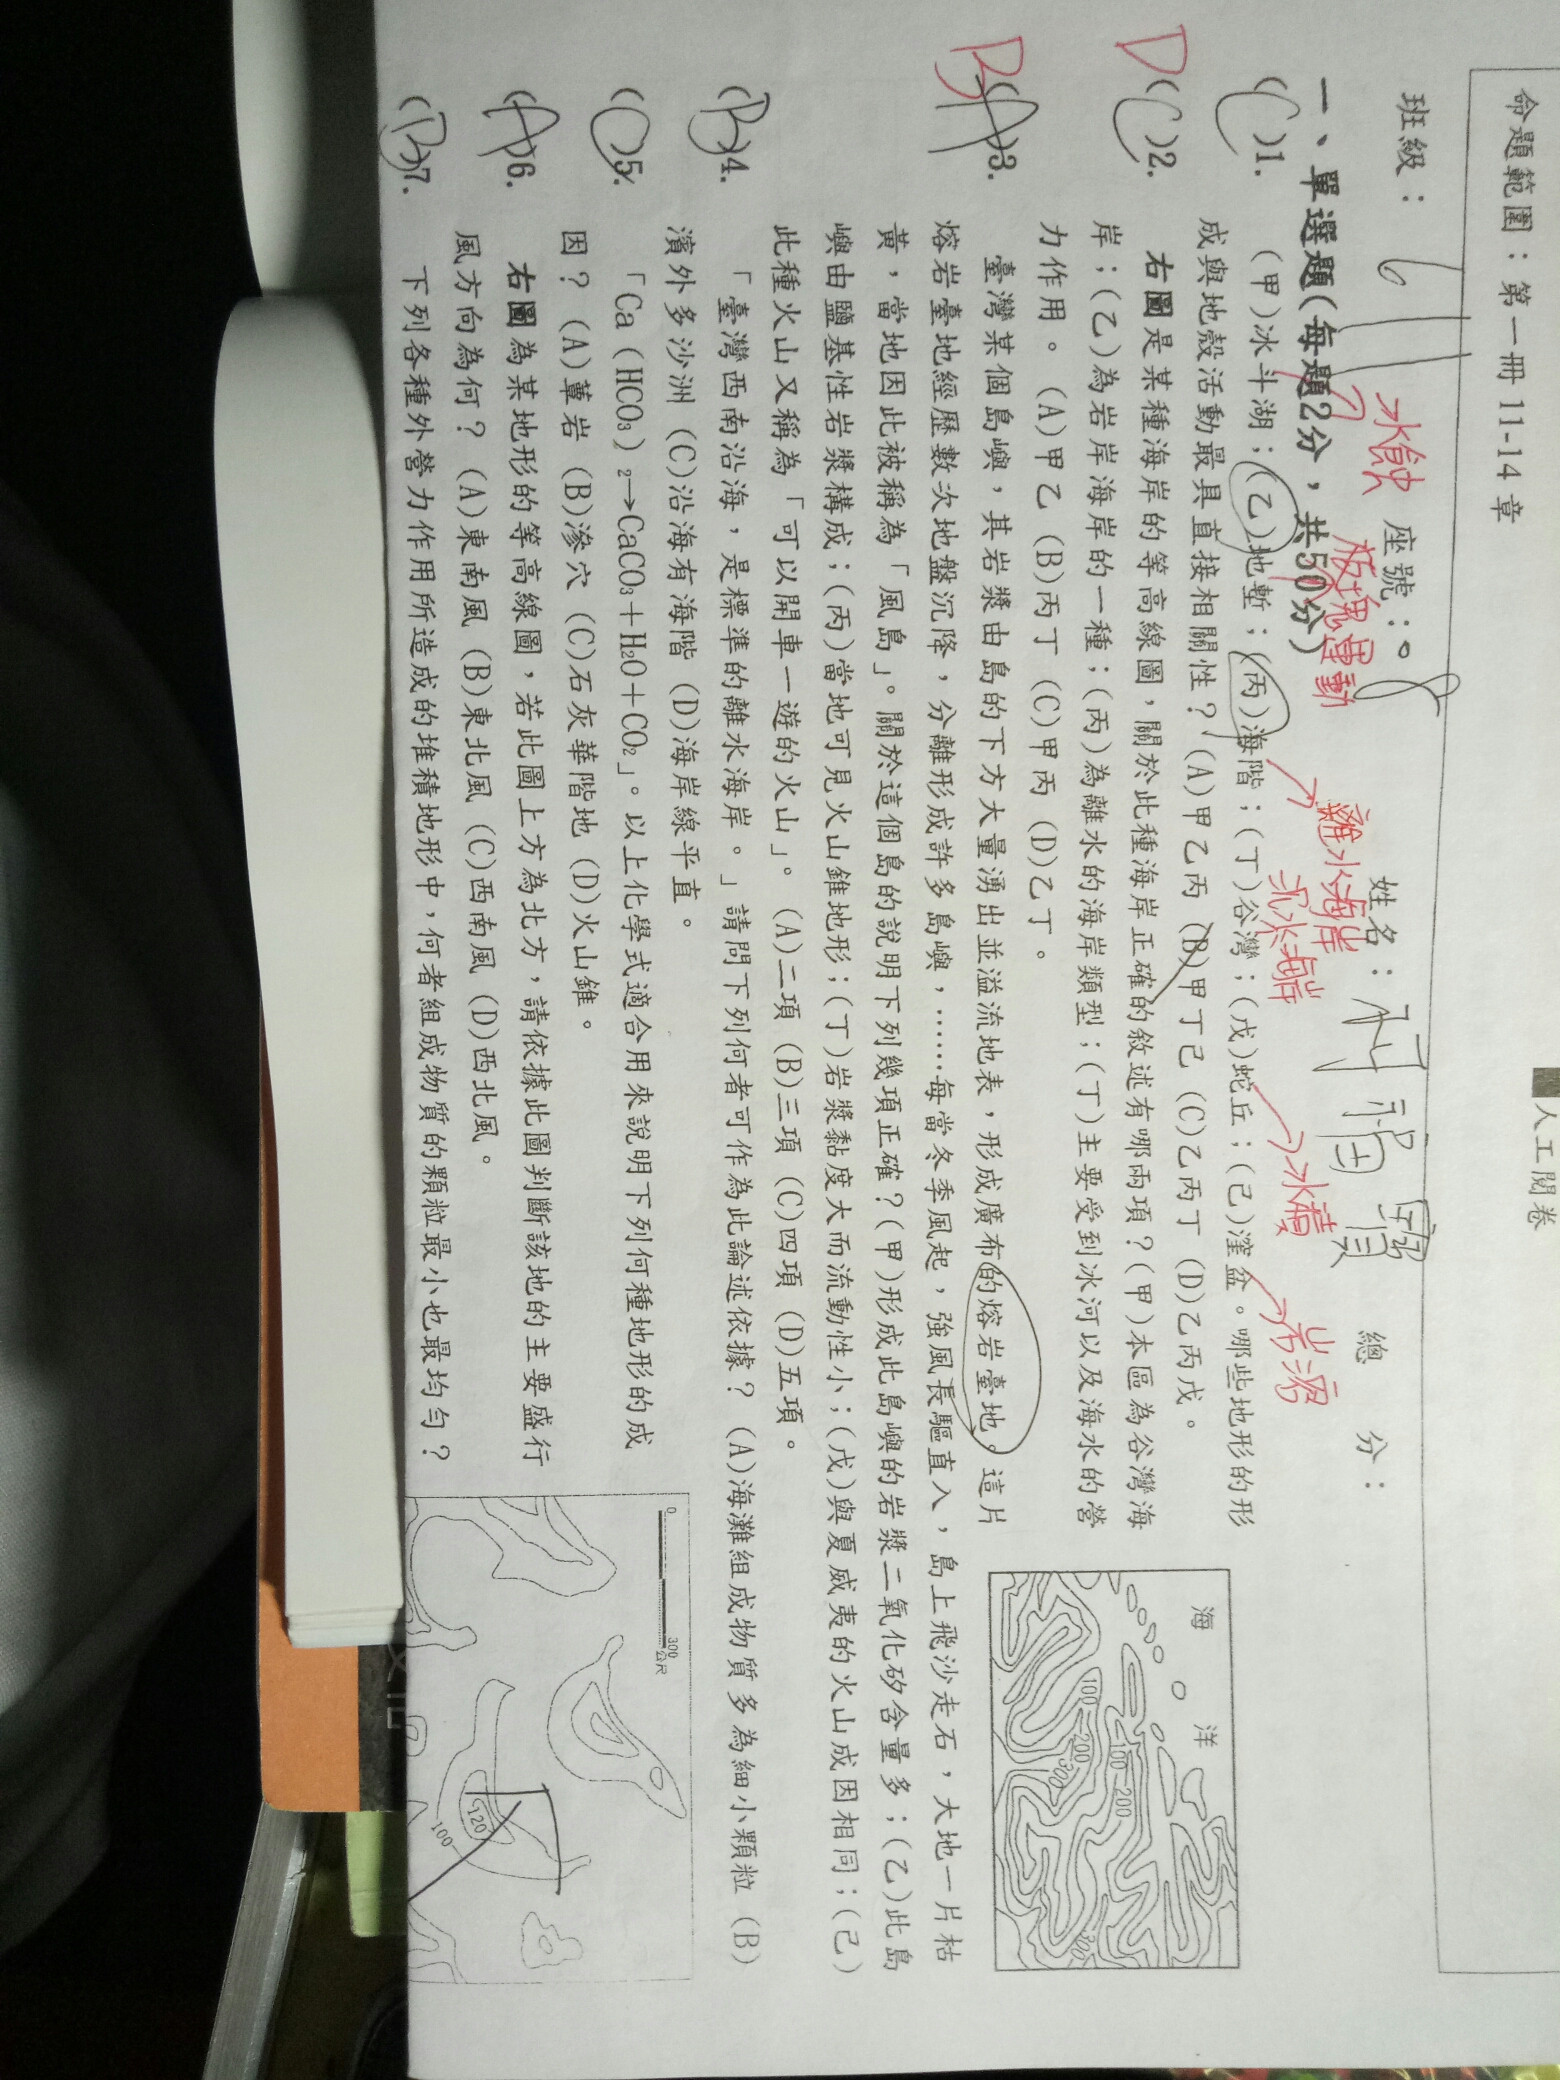 人工閱卷
命題範圍：第一冊 11-14 章
班級： 611 座號： 8 姓名： 總 分：
水蝕 板塊運動 離水海岸 沉水海岸 水積 岩溶
一、單選題(每題2分，共50分)
(C)1. (甲)冰斗湖；(乙)地塹；(丙)海階；(丁)谷灣；(戊)蛇丘；(己)漥盆。哪些地形的形
成與地殼活動最具直接相關性？(A)甲乙丙 (B)甲丁己 (C)乙丙丁 (D)乙丙戊。
D (C)2. 右圖是某種海岸的等高線圖，關於此種海岸正確的敘述有哪兩項？(甲)本區為谷灣海
岸；(乙)為岩岸海岸的一種；(丙)為離水的海岸類型；(丁)主要受到冰河以及海水的營
力作用。 (A)甲乙 (B)丙丁 (C)甲丙 (D)乙丁。
海 洋
100 200 300 100 200 300
B (A)3. 臺灣某個島嶼，其岩漿由島的下方大量湧出並溢流地表，形成廣布的熔岩臺地。這片
熔岩臺地經歷數次地盤沉降，分離形成許多島嶼，……每當冬季風起，強風長驅直入，島上飛沙走石，大地一片枯
黃，當地因此被稱為「風島」。關於這個島的說明下列幾項正確？(甲)形成此島嶼的岩漿二氧化矽含量多；(乙)此島
嶼由鹽基性岩漿構成；(丙)當地可見火山錐地形；(丁)岩漿黏度大而流動性小；(戊)與夏威夷的火山成因相同；(己)
此種火山又稱為「可以開車一遊的火山」。 (A)二項 (B)三項 (C)四項 (D)五項。
(B)4. 「臺灣西南沿海，是標準的離水海岸。」請問下列何者可作為此論述依據？ (A)海灘組成物質多為細小顆粒 (B)
濱外多沙洲 (C)沿海有海階 (D)海岸線平直。
(C)5. 「Ca (HCO₃) ₂→CaCO₃＋H₂O＋CO₂」。以上化學式適合用來說明下列何種地形的成
因？ (A)蕈岩 (B)滲穴 (C)石灰華階地 (D)火山錐。
(A)6. 右圖為某地形的等高線圖，若此圖上方為北方，請依據此圖判斷該地的主要盛行
風方向為何？ (A)東南風 (B)東北風 (C)西南風 (D)西北風。
0 300公尺
120
100
(B)7. 下列各種外營力作用所造成的堆積地形中，何者組成物質的顆粒最小也最均勻？